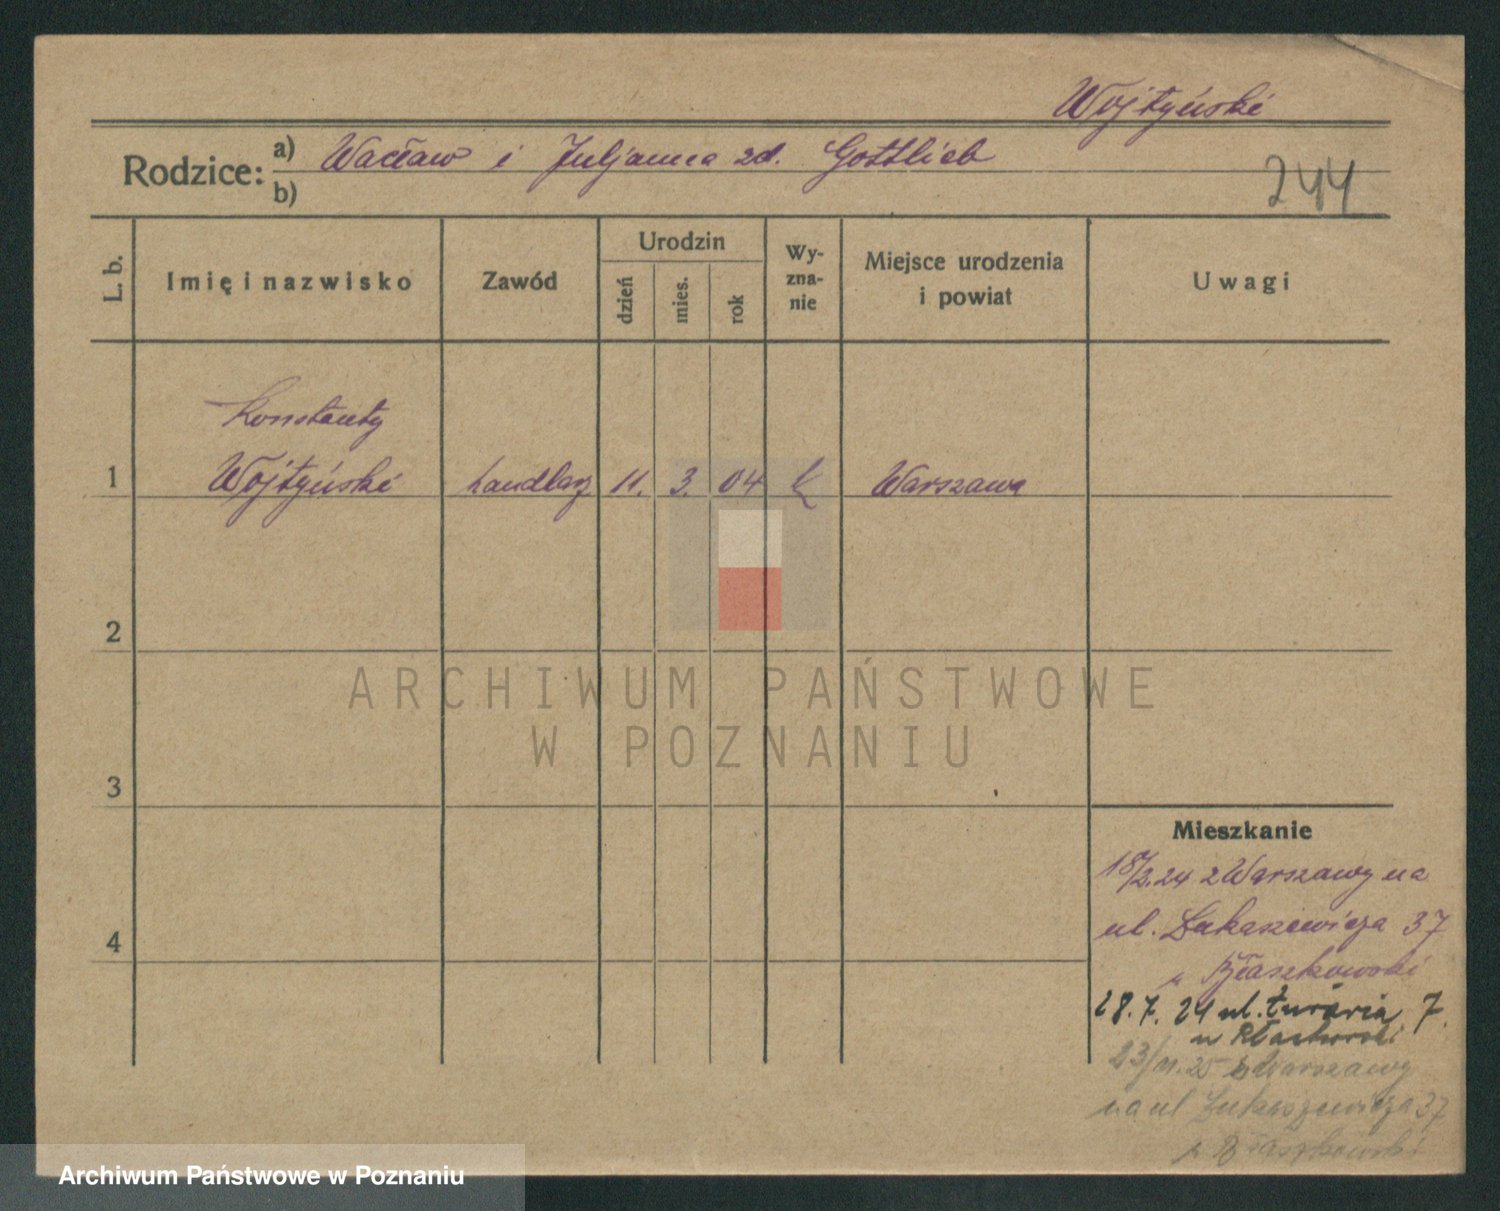 Wojtyński
Rodzice: a) Wacław i Juljanna zd. Gottlieb
b)
244
L. b.
Imię i nazwisko
Zawód
Urodzin
dzień
mies.
rok
Wy-
zna-
nie
Miejsce urodzenia
i powiat
Uwagi
Konstanty
1 Wojtyński handlarz 11. 3. 04 k Warszawa
2
3
4
ARCHIWUM PAŃSTWOWE
W POZNANIU
Mieszkanie
18/2.24 z Warszawy na
ul. Łukaszewicza 37
u Błaszkowski
28. 7. 24 ul. 7.
u
23/11.25 z Warszawy
na ul Łukaszewicza 37
u Błaszkowski
Archiwum Państwowe w Poznaniu